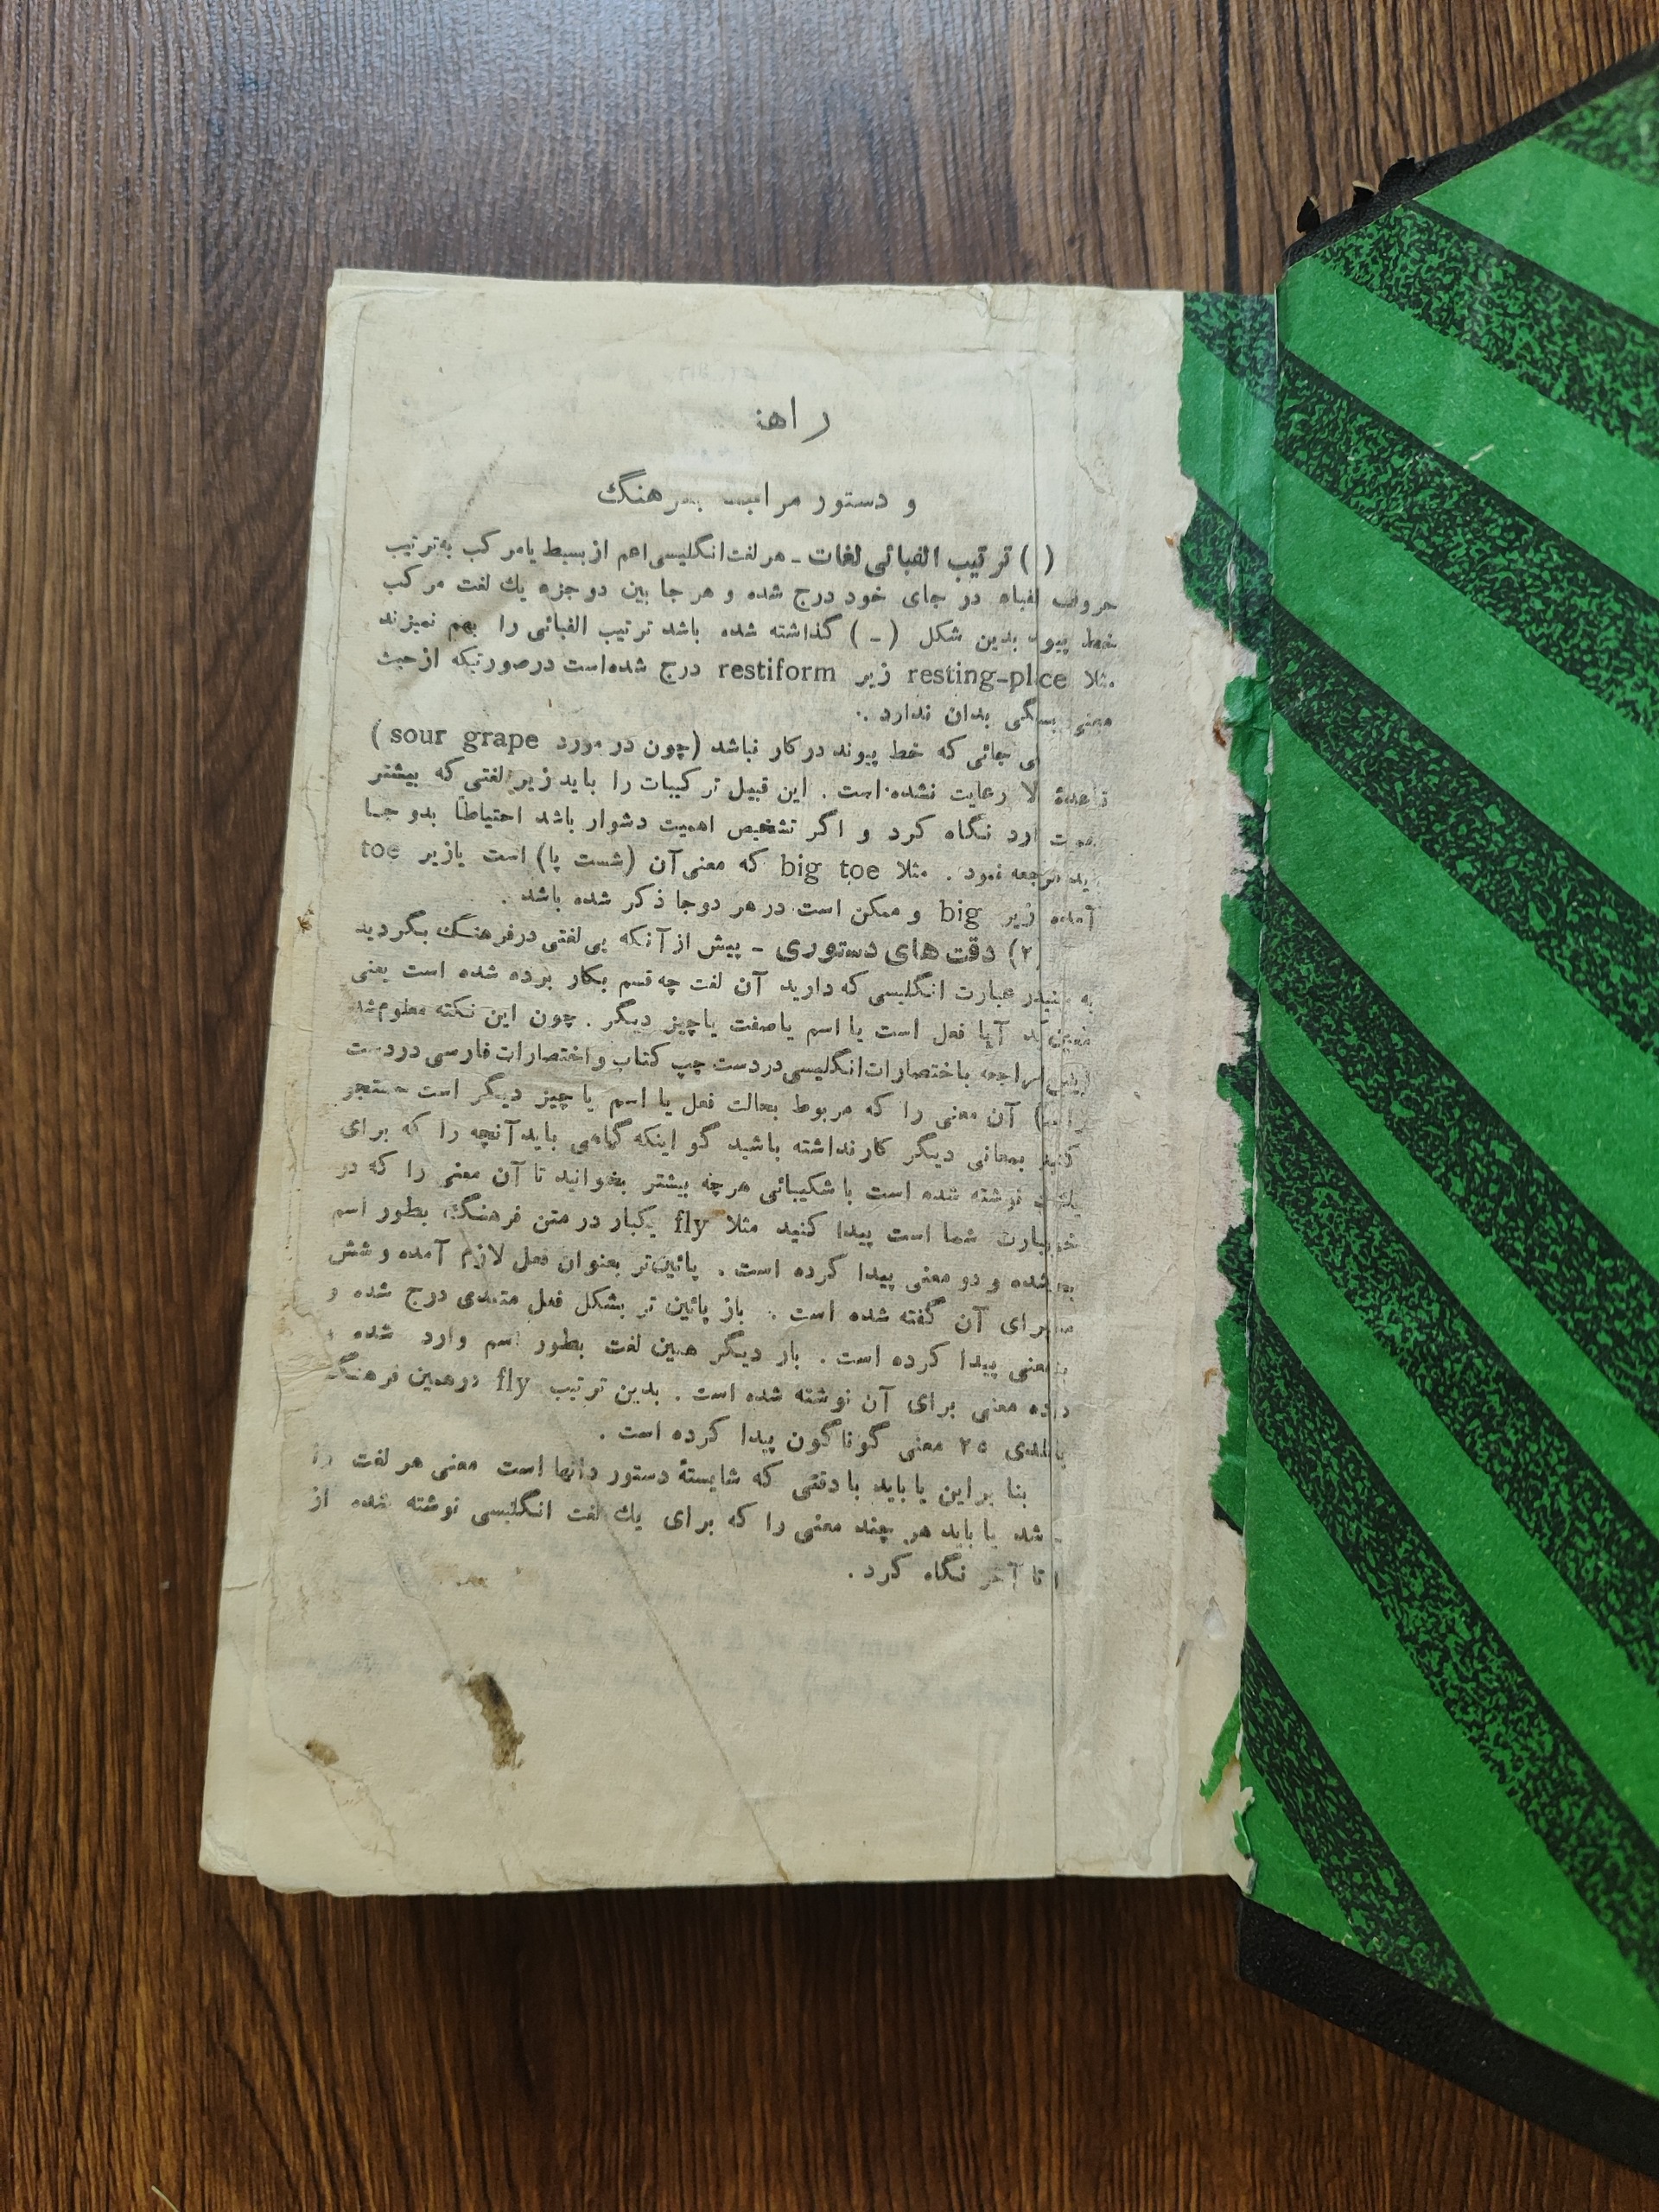 راهن
و دستور فرهنگ
( ) ترتیب الفبائی لغات ـ هر لغت انگلیسی اعم از بسیط یا مرکب به ترتیب
حروف در جای خود درج شده و هر جا بین دو جزء یك لغت مرکب
خط بدین شکل ( ـ ) گذاشته شده باشد ترتیب الفبائی را بهم نمیزند
مثلا resting-place زیر restiform درج شده است درصورتیکه از حیث
معنی بستگی بدان ندارد .
جائی که خط پیوند در کار نباشد (چون در مورد sour grape )
رعایت نشده است . این قبیل ترکیبات را باید زیر لغتی که بیشتر
نگاه کرد و اگر تشخیص اهمیت دشوار باشد احتیاطاً بدو جا
نمود . مثلا big toe که معنی آن (شست پا) است یا زیر toe
آمده زیر big و ممکن است در هر دو جا ذکر شده باشد .
(۲) دقت های دستوری ـ پیش از آنکه پی لغتی در فرهنگ بگردید
در عبارت انگلیسی که دارید آن لغت چه قسم بکار برده شده است یعنی
آیا فعل است یا اسم یا صفت یا چیز دیگر . چون این نکته معلوم شد
باختصارات انگلیسی در دست چپ کتاب و اختصارات فارسی در دست
آن معنی را که مربوط بحالت فعل یا اسم یا چیز دیگر است جستجو
کنید بمعانی دیگر کار نداشته باشید گو اینکه گاهی باید آنچه را که برای
نوشته شده است با شکیبائی هرچه بیشتر بخوانید تا آن معنی را که در
شما است پیدا کنید مثلا fly یکبار در متن فرهنگ بطور اسم
شده و دو معنی پیدا کرده است . پائین‌تر بعنوان فعل لازم آمده و شش
برای آن گفته شده است . باز پائین تر بشکل فعل متعدی درج شده و
معنی پیدا کرده است . بار دیگر همین لغت بطور اسم وارد شده
معنی برای آن نوشته شده است . بدین ترتیب fly در همین فرهنگ
۲۵ معنی گوناگون پیدا کرده است .
بنا بر این یا باید با دقتی که شایستهٔ دستور دانها است معنی هر لغت را
شد یا باید هر چند معنی را که برای یك لغت انگلیسی نوشته شده از
تا آخر نگاه کرد .